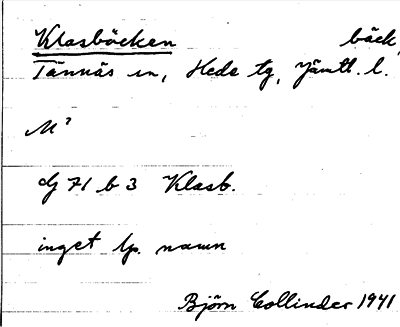 Klasböcken bäck,
Tännäs sn, Hede tg, Jämtl. l.
M²
dg 71 b 3 Klasb.
inget lp. namn
Björn Collinder 1941